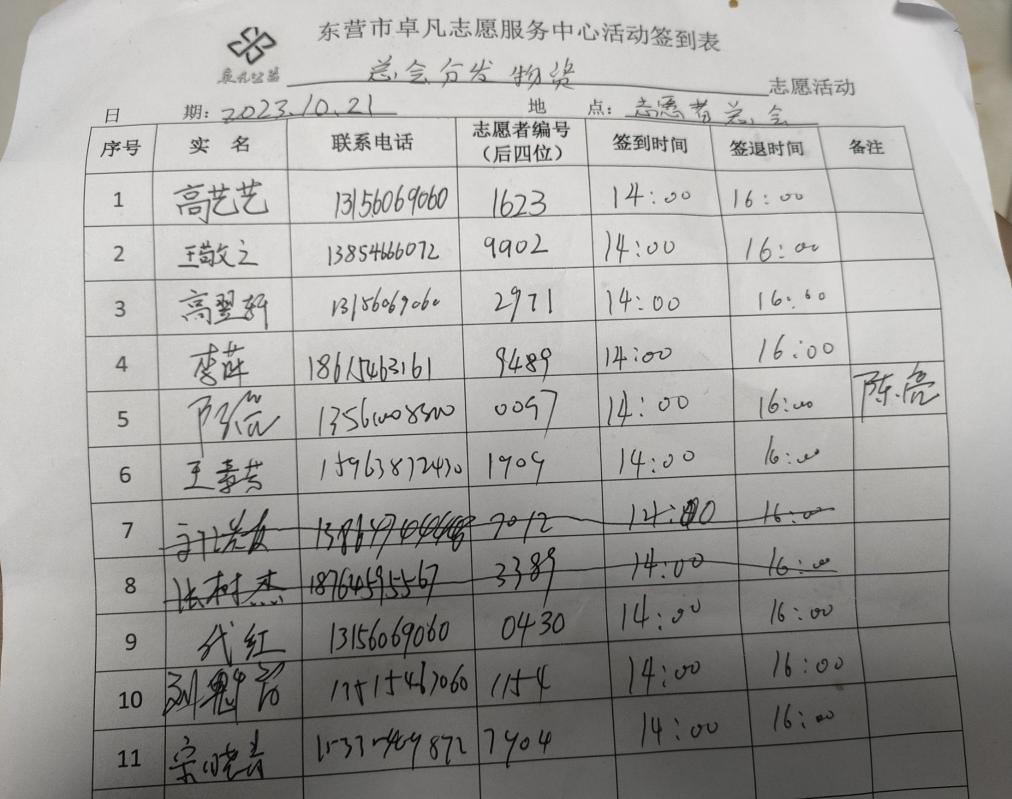 东营市卓凡志愿服务中心活动签到表
卓凡公益 总会分发物资 志愿活动
日 期: 2023.10.21 地 点: 志愿者总会
序号 实 名 联系电话 志愿者编号(后四位) 签到时间 签退时间 备注
1 高艺艺 13156069060 1623 14:00 16:00
2 王敬之 13854666072 9902 14:00 16:00
3 高翌轩 13156069060 2971 14:00 16:00
4 李萍 18615463161 9489 14:00 16:00
5 陈亮 13561008300 0097 14:00 16:00 陈亮
6 王素芸 15963872430 1909 14:00 16:00
7 7012 14:00 16:00
8 张树杰 18764595567 3389 14:00 16:00
9 代红 13156069060 0430 14:00 16:00
10 刘魁 17515467060 1154 14:00 16:00
11 宗晓青 7904 14:00 16:00